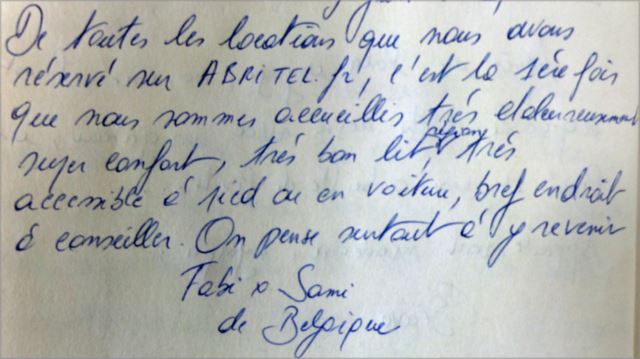 De toutes les locations que nous avons
réservé sur ABRITEL.fr, c'est la 1ère fois
que nous sommes accueillis très chaleureusement
super confort, très bon lit, région très
accessible à pied ou en voiture, bref endroit
à conseiller. On pense surtout à y revenir
Fabi x Sami
de Belgique